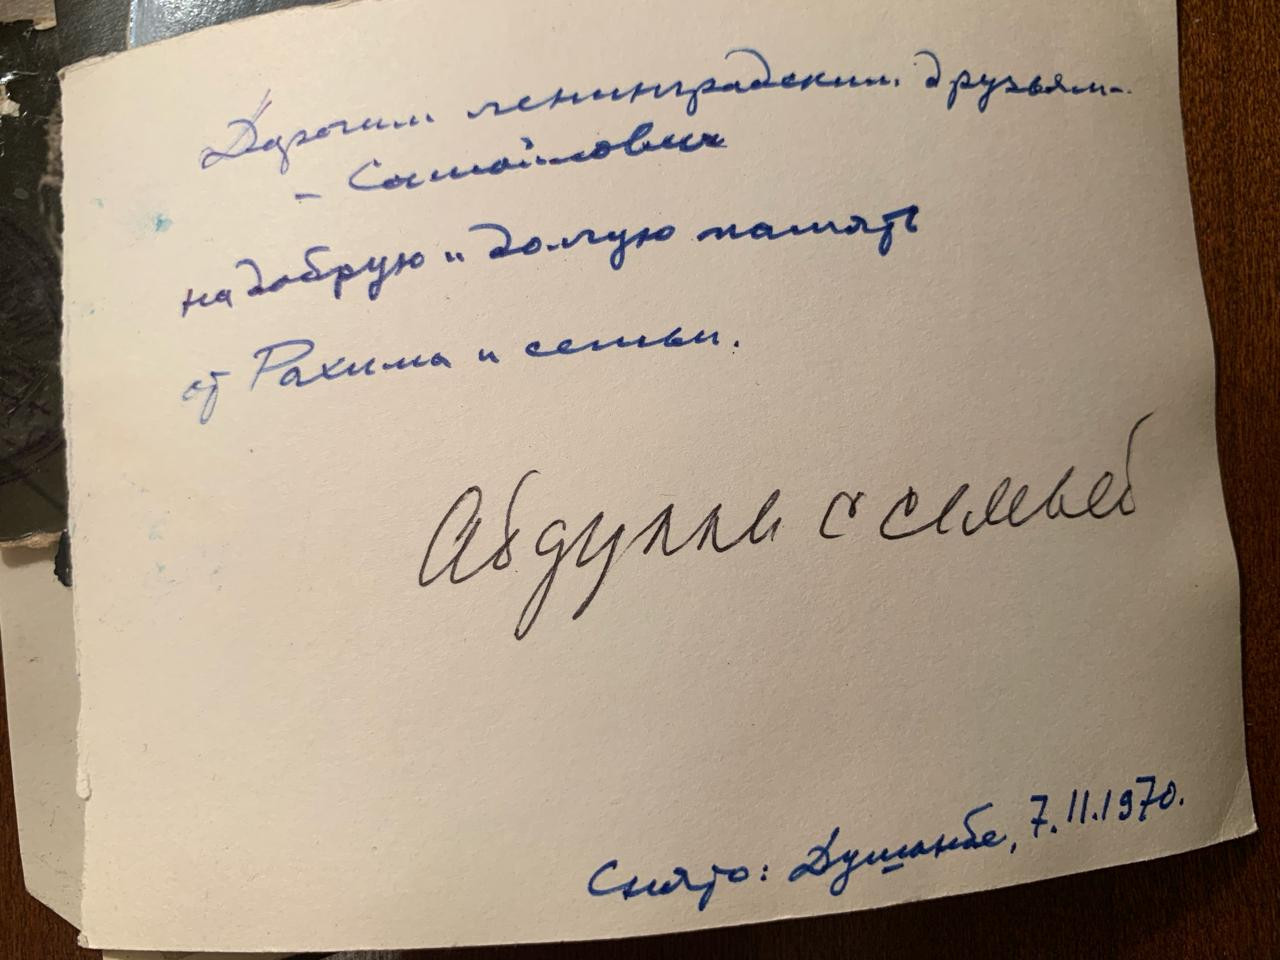 Дорогим ленинградским друзьям -
- Самойлович
на добрую и долгую память
от Рахима и семьи.
Абдулла с семьей
Снято: Душанбе, 7.11.1970.